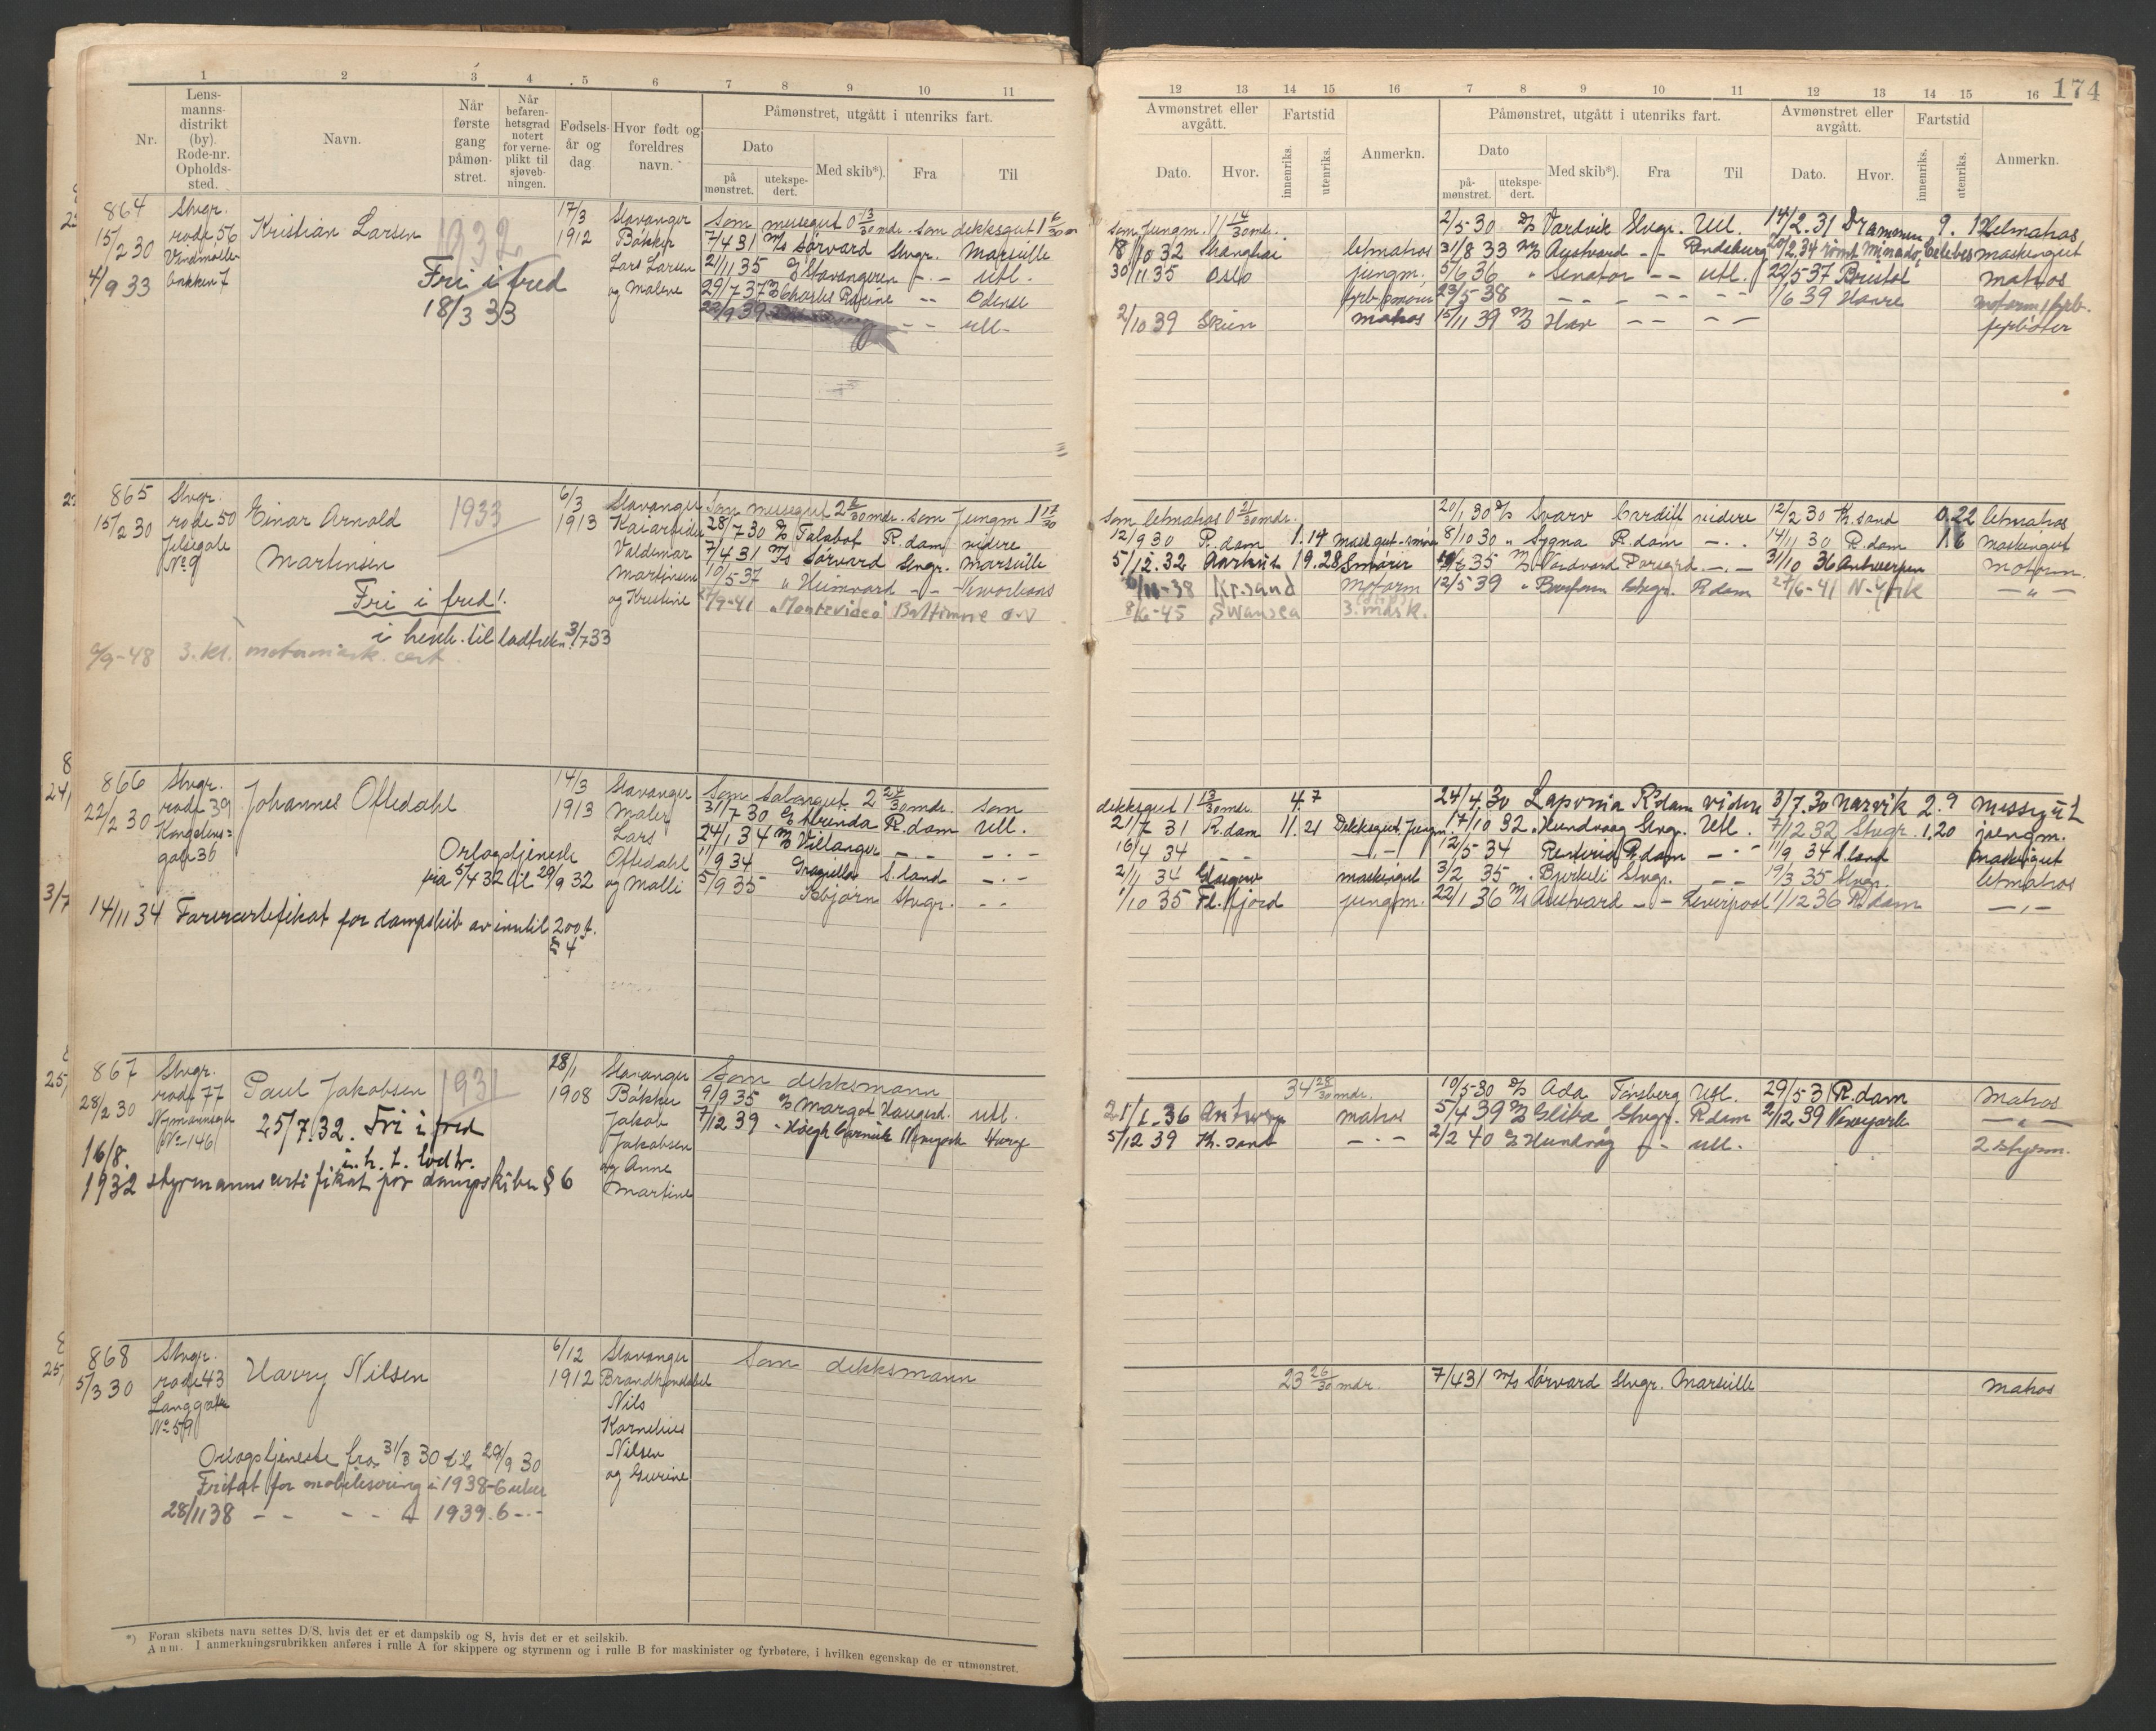 1 2 3 4 5 6 7 8 9 10 11
Nr.
Lens-
manns-
distrikt
(by).
Rode-nr.
Opholds-
sted.
Navn.
Når
første
gang
påmøn-
stret.
Når
befaren-
hetsgrad
notert
for verne-
plikt til
sjøveb-
ningen.
Fødsels-
år og
dag
Hvor født og
foreldres
navn.
Påmønstret, utgått i utenriks fart.
Dato
på
mønstret.
utekspe-
dert.
Med skib*).
Fra
Til
864 Stvgr. 17/3 Stavanger Som messegut 0 13/30 mdr. Som dekksgut 1 6/30 m
15/2 30 rode 56 Kristian Larsen 1932 1912 Bøkker 7/4 31 M/S Sørvard Stvgr. Marseille
Vindmølle- Lars Larsen 21/11 35 D/S Stavangeren - . - Utl.
4/9 33 bakken 7 Fri i fred og Malene 29/7 37 Charles Racine - - Odense
18/3 33 22/9 39 - - utl-
865 Stvgr. 6/3 Stavanger Som messegut 2 mdr. Som Jungm 1 17/30
15/2 30 rode 50 Einar Arnold 1933 1913 Kaiarbeider 28/7 30 D/S Talabot R.dam videre
Jelsegate Valdemar 7/4 31 M/S Sørvard Stvgr. Marseille
No 9 Martinsen Martinsen 10/5 37 " Heimvard - - Neworleans
Fri i fred! og Kristine 27/9-41 " Montevideo Baltimore o.v
i henh. til lodtrekn. 3/7 33
9/9-48 3. kl. motormask. cert.
866 Stvgr. 14/3 Stavanger Som salongut. 2 24/30 mdr. Som
22/2 30 rode 39 Johannes Oftedahl 1913 Maler 31/7 30 R.dam Utl.
Kongstens= Lars 24/1 34 M/S Villanger - . - - . -
gata 36 Orlogstjeneste Oftedahl 11/9 34 S.land - . -
fra 5/4 32 til 29/9 32 og Malli 5/9 35 Isbjørn Stvgr. - -
14/11 34 Førercertifikat for dampskib av inntil 200 t.
§ 4
867 Stvgr. 28/1 Stavanger Som dekksmann
28/2 30 rode 77 Paul Jakobsen 1931 1908 Bøkker 9/9 35 D/S Margot Haugesd. utl.
Nymannsgt. 25/7 32. Fri i fred Jakob 7/12 39 " Høegh Carrier Newyork
16/8. No 146 i. h. t. lodtr. Jakobsen
og Anne
1932 styrmannscertifikat for dampskiber § 6 Martine
868 Stvgr. 6/12 Stavanger Som dekksmann
5/3 30 rode 43 Harry Nilsen 1912
Langgate Nils
No 59 Kornelius
Orlogstjeneste fra 31/3 30 til 29/9 30 Nilsen
Fritat for mobilisering i 1938-6 uker og Gurine
28/11 38 - - - - 1939. 6 - . -
*) Foran skibets navn settes D/S, hvis det er et dampskib og S, hvis det er et seilskib.
Anm. I anmerkningsrubrikken anføres i rulle A for skippere og styrmenn og i rulle B for maskinister og fyrbøtere, i hvilken egenskap de er utmønstret.
174
12 13 14 15 16 7 8 9 10 11 12 13 14 15 16
Avmønstret eller
avgått.
Fartstid
Dato.
Hvor.
innenriks.
utenriks.
Anmerkn.
Påmønstret, utgått i utenriks fart.
Dato
på-
mønstret.
utekspe-
dert.
Med skib*).
Fra
Til
Avmønstret eller
avgått.
Fartstid
Dato.
Hvor.
innenriks.
utenriks.
Anmerkn.
som Jungm. 11 14/30 mdr. 2/5-30 D/S Vardvik Stvgr. Utl. 14/2. 31 Drammen 9. 12 letmatros
18/10 32 Shanghai letmatros 31/8 33 M/S Austvard - - 20/2.34 rømt Minado, Celebes maskingut
30/11 35 Oslo jungm. 5/6 36 " Senator - - utl. 22/5 37 Bristol matros
23/5-38 - - - - - - 1/6 39 Havre
2/10 39 Skien matros 15/11 39 M/S Hav - - - - fyrbøter
Som letmatros 0 21/30 mdr. 20/1 30 D/S Svarv Cardiff videre 12/2 30 Kr.sand 0.22 letmatros
12/9 30 R.dam 1.14 8/10 30 " Sygna R.dam - . . 14/11 30 R.dam 1.6 maskingut
5/12. 32 Aarhus 19.28 Smører 35 M/S Nordvard Porsgrd. - . - 31/10 36 Antwerpen motorm.
6/11-38 Kr.sand Motorm 12/5 39 " Stvgr. R.dam 27/6-41 N-York - " -
8/6-45 Swansea 3. mask.
dekksgut 1 13/30 mdr. 4.7 24/4.30 Laponia R'dam videre 3/7.30 Narvik 2.9 messgut
21/7 31 R.dam 11.21 Dekksgut. Jungm. 17/10 32 " Hundvaag Stvgr. Utl. 7/12 32 Stvgr. 1.20 jungm.
16/4 34 - - - . - 12/5 34 R.dam - . - 11/9 34 S.land maskingut
2/11 34 Glasgow maskingut 3/2 35 " Bjerkeli Stvgr. - - 19/3 35 Stvgr. letmatros
1/10 35 Fl.fjord jungm. 22/1 36 M/S Austvard - - Liverpool 1/12 36 R'dam - . -
34 28/30 mdr. 10/5-30 D/S Ada Tønsberg Utl. 29/5 31 R.dam Matros
21/1. 36 Antwerp matros 5/4 39 D/S Gliba Stvgr. R.dam 2/12 39 Newyork - " -
5/12 39 Kr.sand - . - 2/2 40 D/S Hundvåg - - utl. 2 styrm.
23 26/30 mdr. 7/4 31 M/S Sørvard Stvgr. Marseille matros